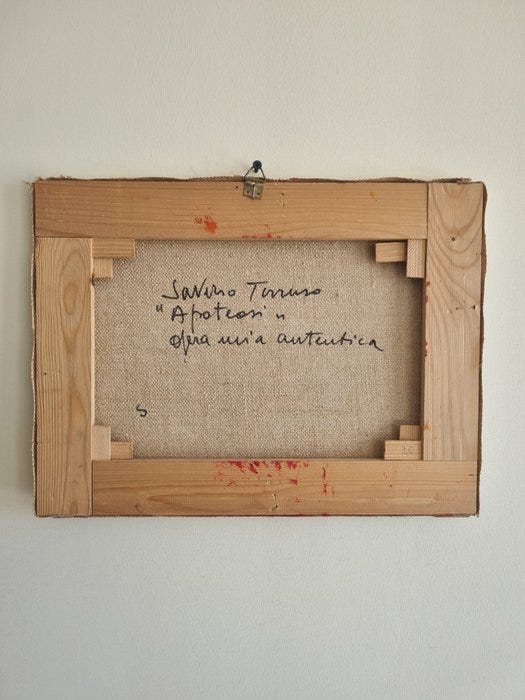 Saverio Terruso
"Apoteosi"
opera mia autentica
S